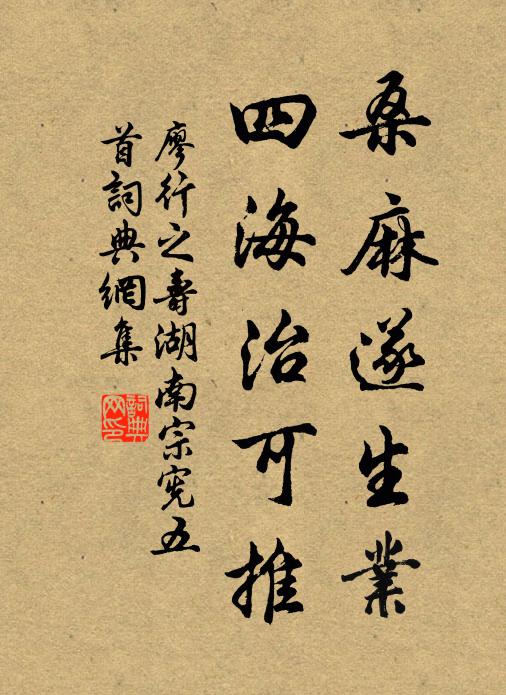 桑麻遂生業
四海治可推
廖行之壽湖南宗憲五
首詞典網集
詞典
网印